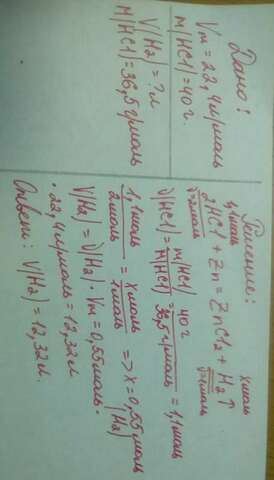 Дано:
Vm = 22,4 л/моль
m(HCl) = 40 г.
V(H2) = ? л
M(HCl) = 36,5 г/моль
Решение:
1,1 моль x моль
2HCl + Zn = ZnCl2 + H2↑
ν=2моль ν=1моль
ν(HCl) = m(HCl) / M(HCl) = 40 г / 36,5 г/моль = 1,1 моль
1,1 моль / 2 моль = x моль / 1 моль => x = 0,55 моль (H2)
V(H2) = ν(H2) · Vm = 0,55 моль ·
· 22,4 л/моль = 12,32 л
Ответ: V(H2) = 12,32 л.